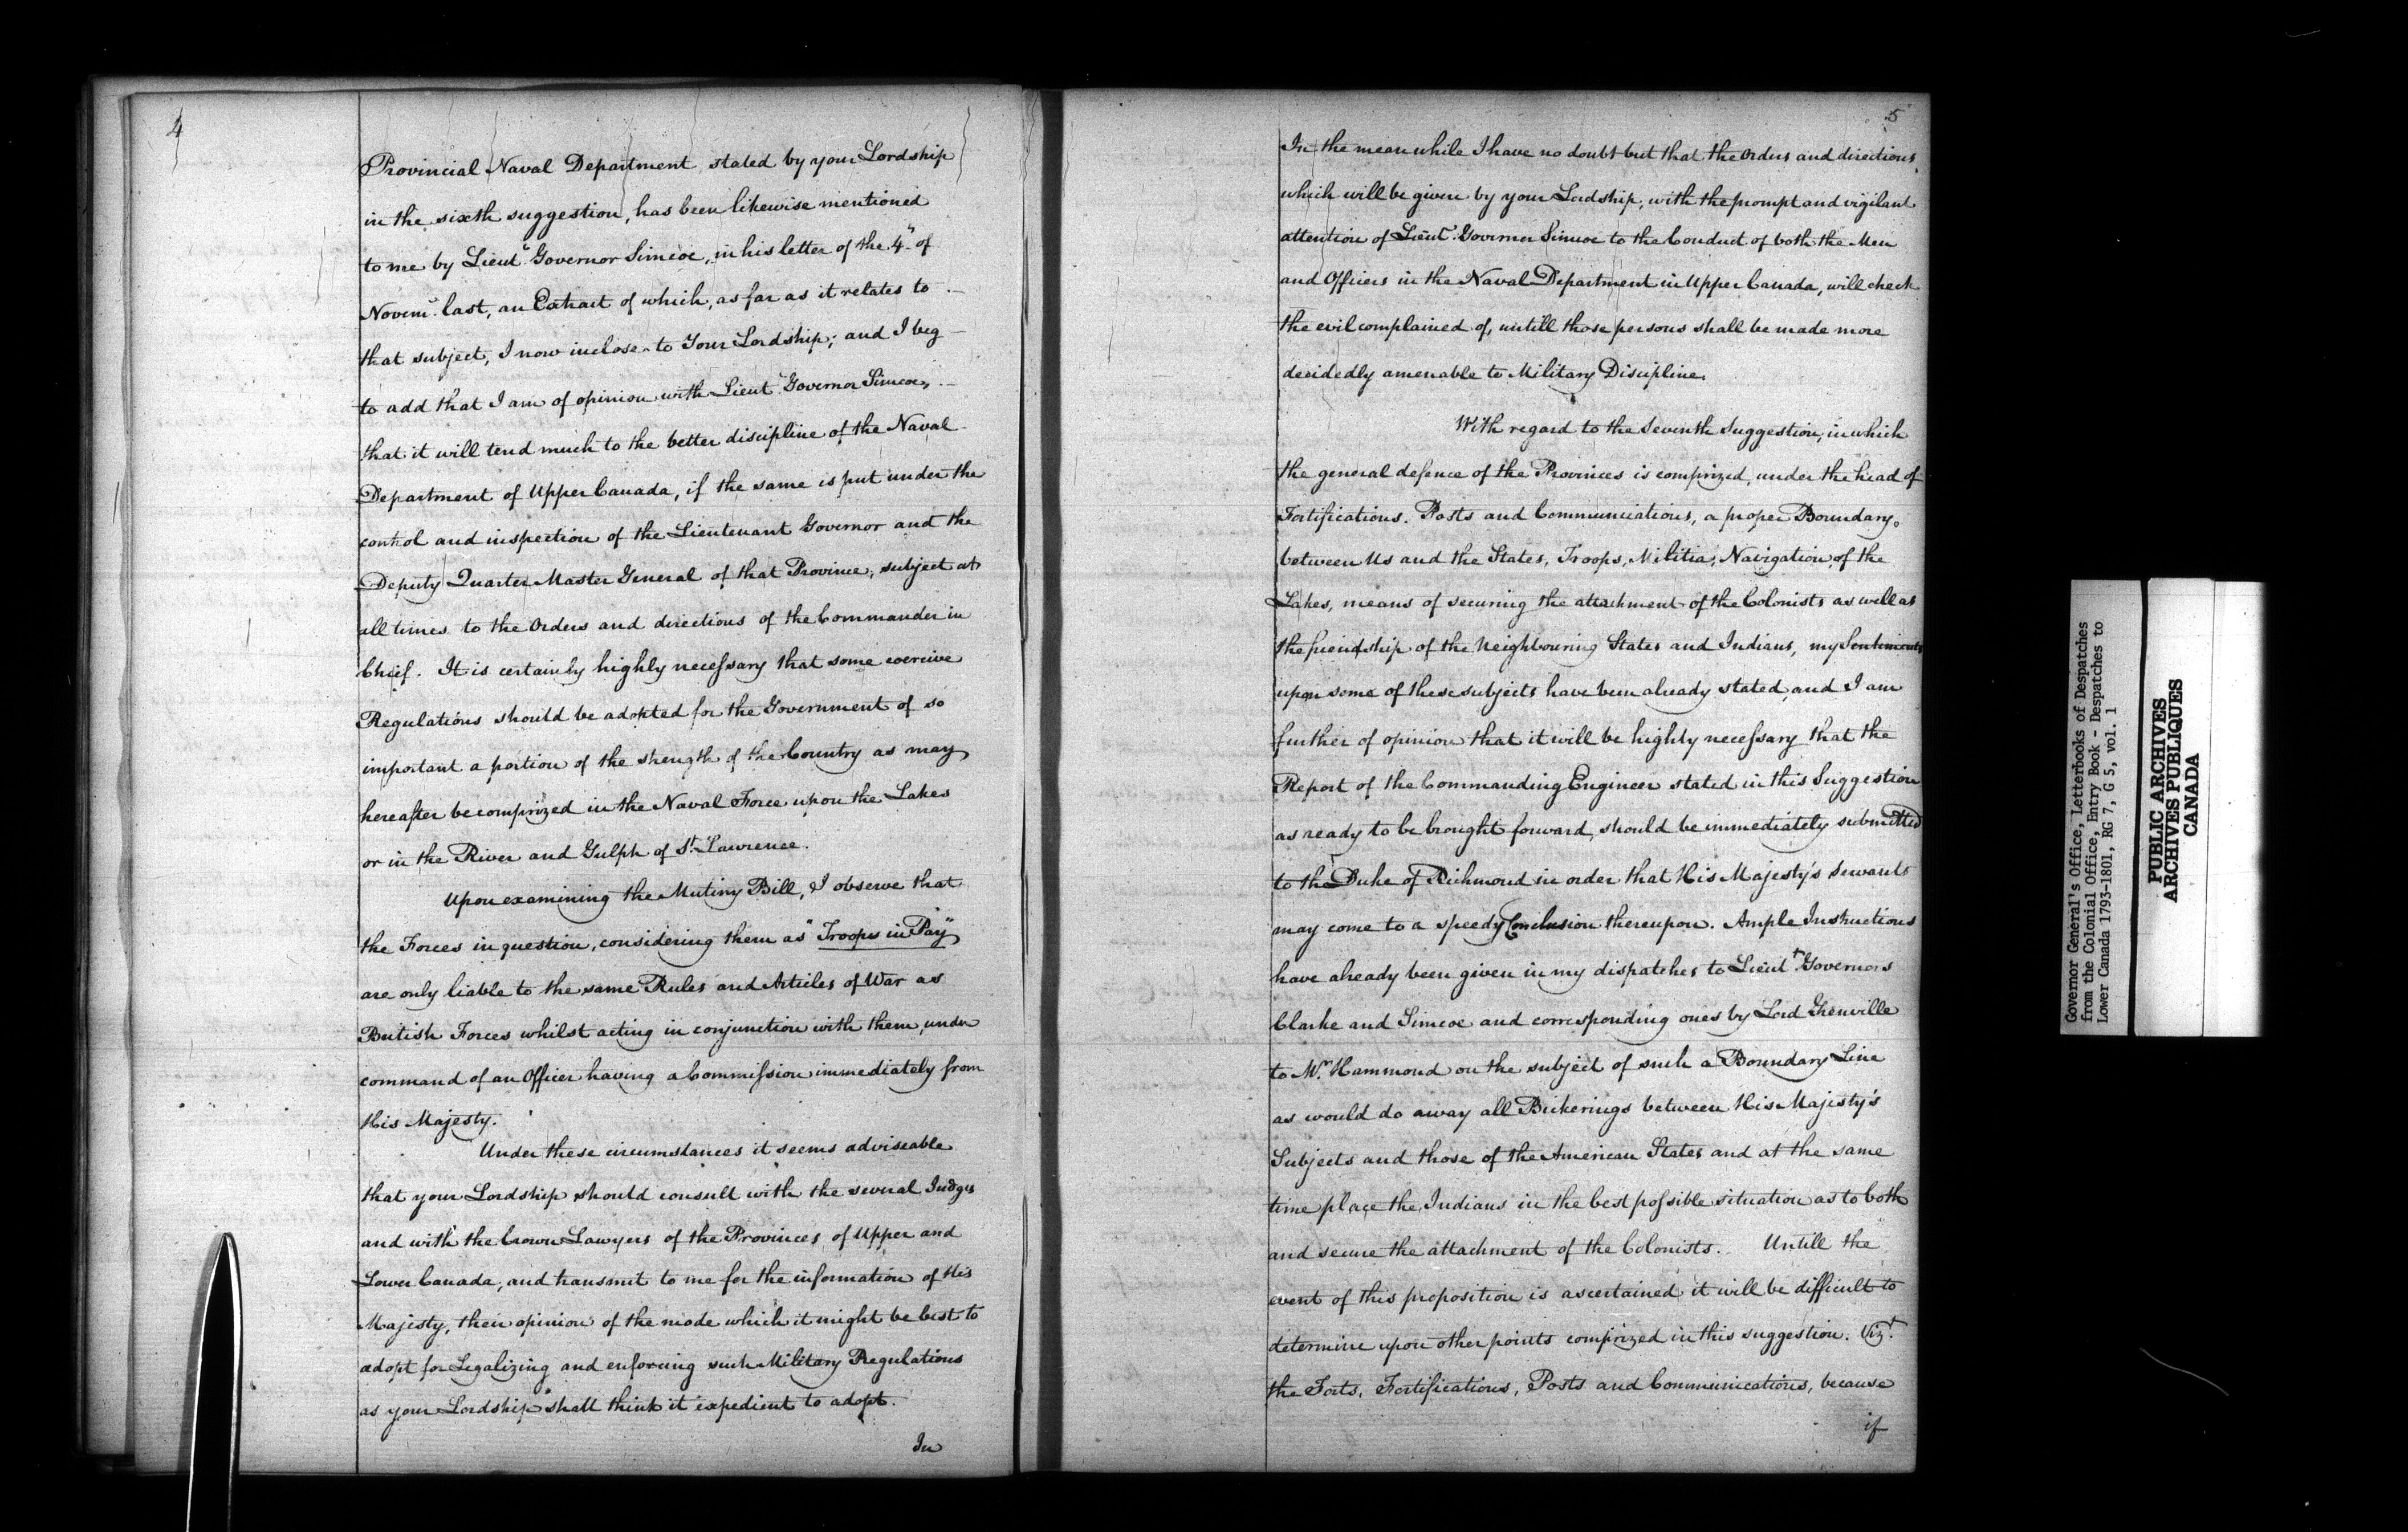 4
Provincial Naval Department stated by your Lordship
in the sixth suggestion, has been likewise mentioned
to me by Lieut. Governor Simcoe, in his letter of the 4th of
Novemr. last, an Extract of which, as far as it relates to
that subject, I now inclose to Your Lordship; and I beg
to add that I am of opinion with Lieut. Governor Simcoe,
that it will tend much to the better discipline of the Naval
Department of Upper Canada, if the same is put under the
control and inspection of the Lieutenant Governor and the
Deputy Quarter Master General of that Province, subject at
all times to the Orders and directions of the Commander in
Chief. It is certainly highly necessary that some coercive
Regulations should be adopted for the Government of so
important a portion of the strength of the Country as may
hereafter be comprized in the Naval Force upon the Lakes
or in the River and Gulph of St. Lawrence.
Upon examining the Mutiny Bill, I observe that
the Forces in question, considering them as "Troops in Pay"
are only liable to the same Rules and Articles of War as
British Forces whilst acting in conjunction with them, under
command of an Officer having a Commission immediately from
His Majesty.
Under these circumstances it seems adviseable
that your Lordship should consult with the several Judges
and with the Crown Lawyers of the Provinces of Upper and
Lower Canada, and transmit to me for the information of His
Majesty, their opinion of the mode which it might be best to
adopt for Legalizing and enforcing such Military Regulations
as your Lordship shall think it expedient to adopt.
In
5
In the mean while I have no doubt but that the Orders and directions
which will be given by your Lordship, with the prompt and vigilant
attention of Lieut. Governor Simcoe to the Conduct of both the Men
and Officers in the Naval Department in Upper Canada, will check
the evil complained of, untill those persons shall be made more
decidedly amenable to Military Discipline.
With regard to the Seventh Suggestion, in which
the general defence of the Provinces is comprized, under the head of
Fortifications. Posts and Communications, a proper Boundary
between Us and the States, Troops, Militia, Navigation of the
Lakes, means of securing the attachment of the Colonists as well as
the friendship of the Neighbouring States and Indians, my Sentiments
upon some of these subjects have been already stated, and I am
further of opinion that it will be highly necessary that the
Report of the Commanding Engineer stated in this Suggestion
as ready to be brought forward, should be immediately submitted
to the Duke of Richmond in order that His Majesty's Servants
may come to a speedy Conclusion thereupon. Ample Instructions
have already been given in my dispatches to Lieut. Governors
Clarke and Simcoe and corresponding ones by Lord Grenville
to Mr. Hammond on the subject of such a Boundary Line
as would do away all Bickerings between His Majesty's
Subjects and those of the American States and at the same
time place the Indians in the best possible situation as to both
and secure the attachment of the Colonists. Untill the
event of this proposition is ascertained it will be difficult to
determine upon other points comprized in this suggestion. Vizt.
the Forts, Fortifications, Posts and Communications, because
if
Governor General's Office, Letterbooks of Despatches
from the Colonial Office, Entry Book - Despatches to
Lower Canada 1793-1801, RG 7, G 5, vol. 1
PUBLIC ARCHIVES
ARCHIVES PUBLIQUES
CANADA